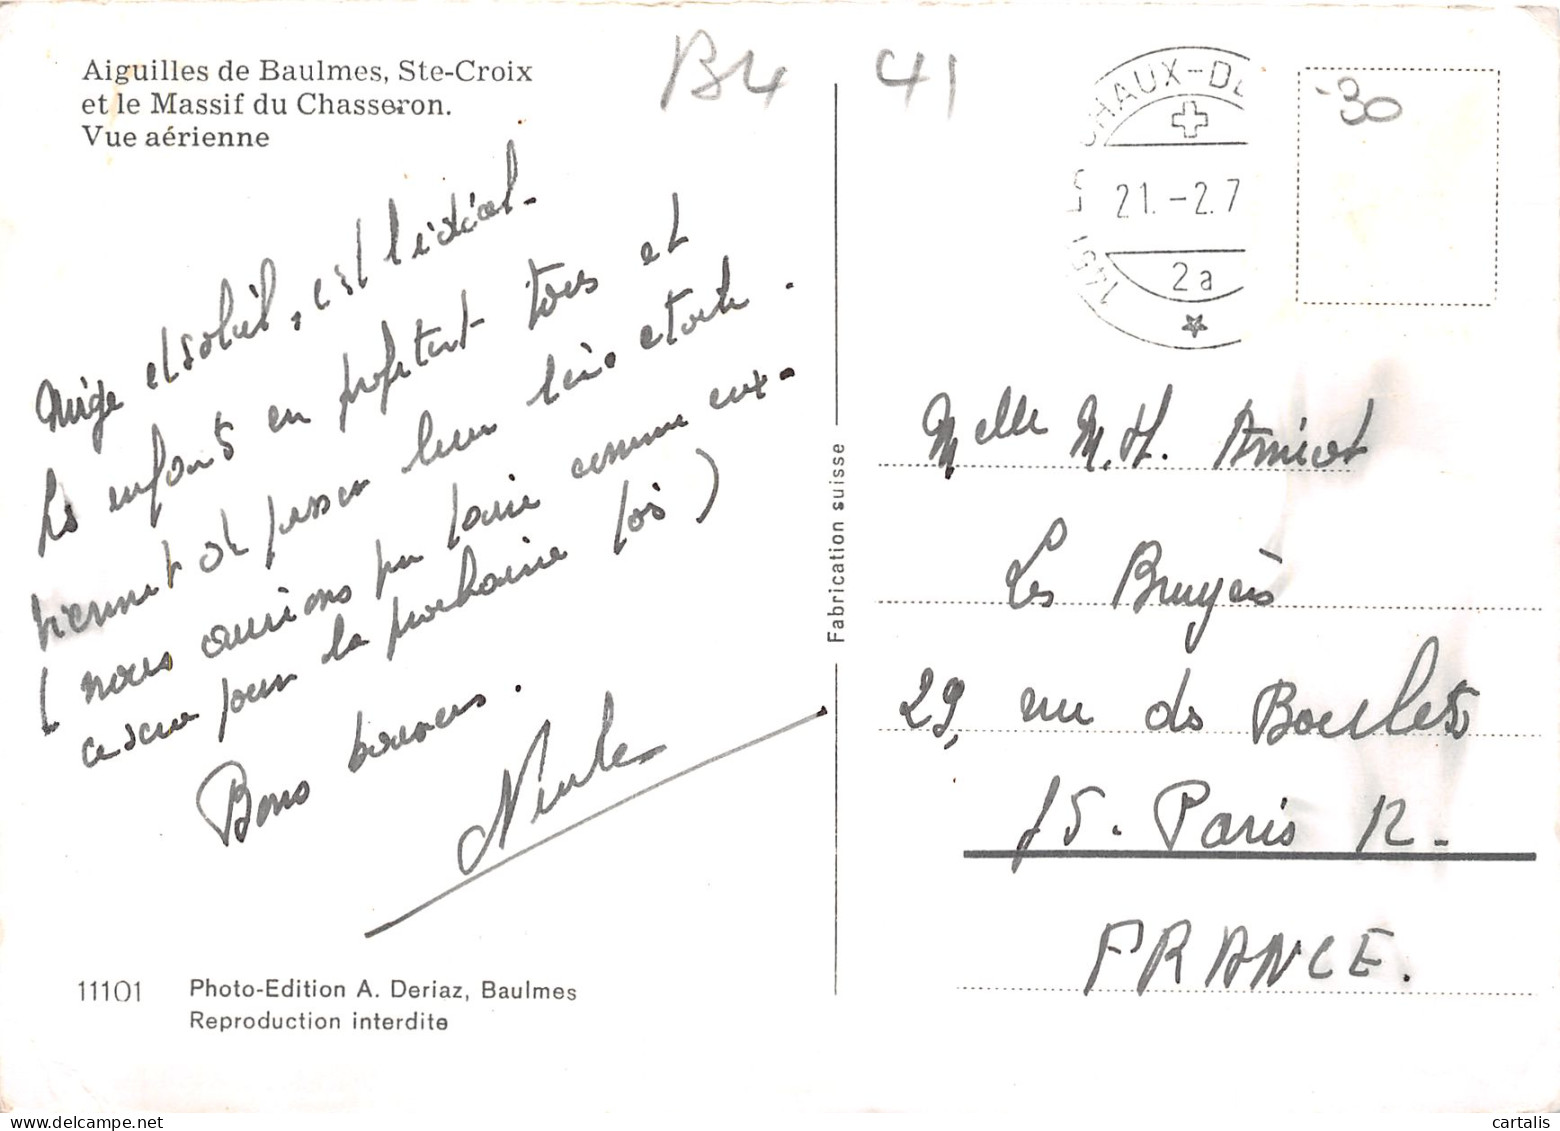 Aiguilles de Baulmes, Ste-Croix
et le Massif du Chasseron.
Vue aérienne
B4 41
-30
CHAUX-DE
21.-2.7
2a
1451 LES
Neige et soleil, c'est l'idéal.
Les enfants en profitent tous et
viennent de passer leur 1ère étoile.
(nous aurions pu faire comme eux.
ce sera pour la prochaine fois)
Bons baisers.
Fabrication suisse
Melle M.H. Amiot
Les Bruyères
29, rue des Boulets
75. Paris 12.
FRANCE.
11101 Photo-Edition A. Deriaz, Baulmes
Reproduction interdite
cartalis